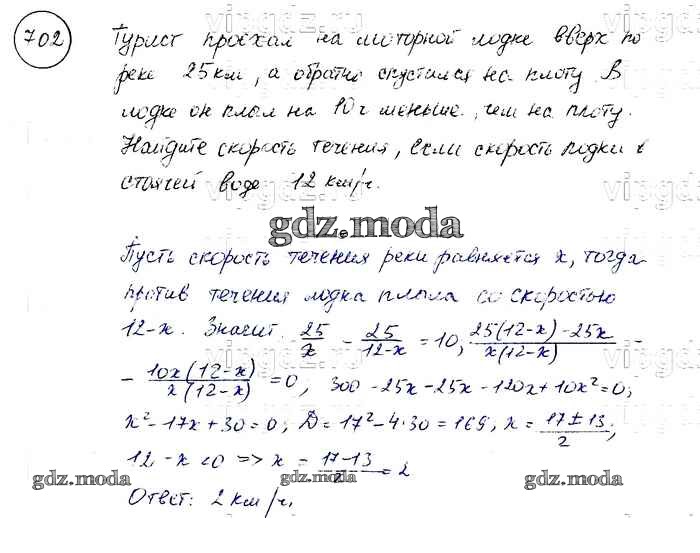 702
Турист проехал на моторной лодке вверх по
реке 25 км, а обратно спустился на плоту. В
лодке он плыл на 10 ч меньше, чем на плоту.
Найдите скорость течения, если скорость лодки в
стоячей воде 12 км/ч.
gdz.moda
Пусть скорость течения реки равняется x, тогда
против течения лодка плыла со скоростью
12-x. Значит 25/x - 25/(12-x) = 10, (25(12-x)-25x)/(x(12-x)) -
- 10x(12-x)/(x(12-x)) = 0, 300-25x-25x-120x+10x²=0;
x²-17x+30=0; D=17²-4·30=169, x=(17±13)/2;
12-x<0 => x = (17-13)/2 = 2
gdz.moda gdz.moda
Ответ: 2 км/ч.